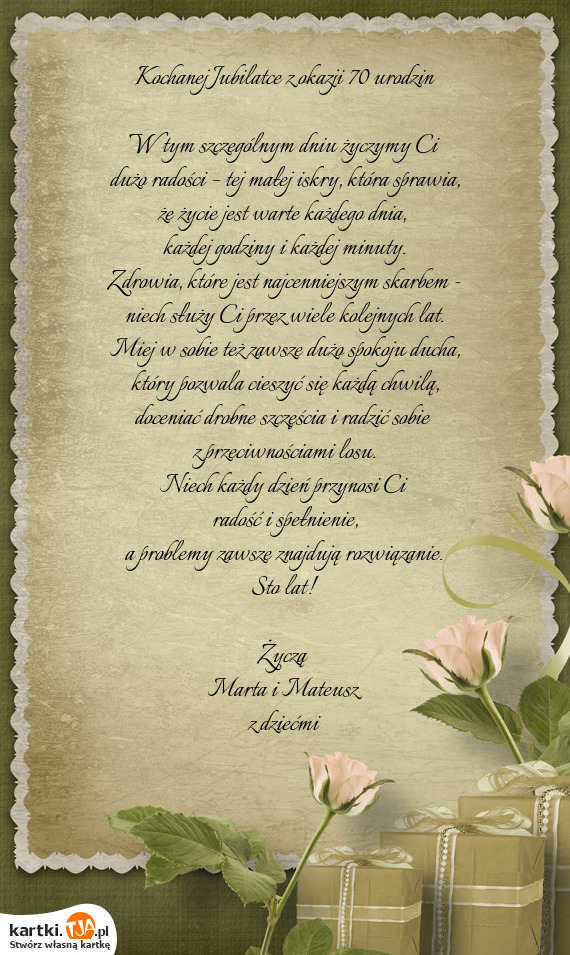 Kochanej Jubilatce z okazji 70 urodzin
W tym szczególnym dniu życzymy Ci
dużo radości – tej małej iskry, która sprawia,
żę życie jest warte każdego dnia,
każdej godziny i każdej minuty.
Zdrowia, które jest najcenniejszym skarbem -
niech służy Ci przez wiele kolejnych lat.
Miej w sobie też zawszę dużo spokoju ducha,
który pozwala cieszyć się każdą chwilą,
doceniać drobne szczęścia i radzić sobie
z przeciwnościami losu.
Niech każdy dzień przynosi Ci
radość i spełnienie,
a problemy zawszę znajdują rozwiązanie.
Sto lat!
Życzą
Marta i Mateusz
z dziećmi
kartki.TJA.pl
Stwórz własną kartkę